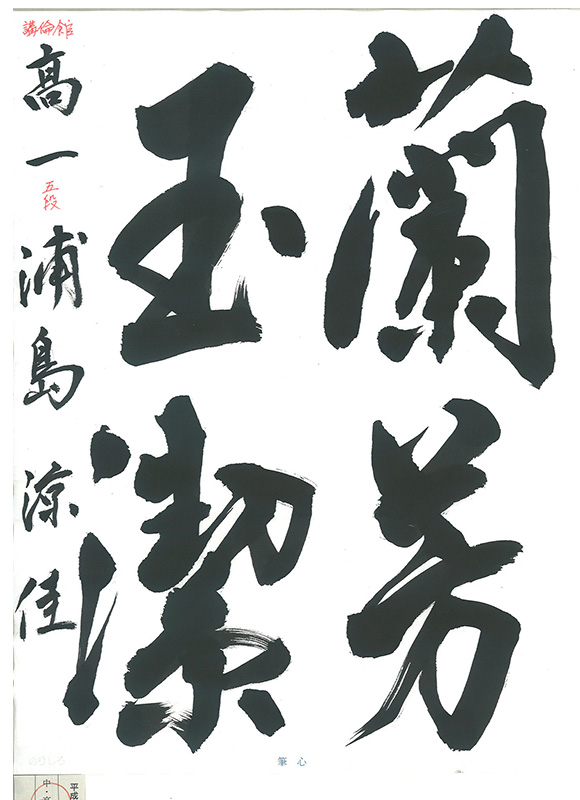 蘭芳
玉潔
講倫館
高一 五段 浦島 涼佳
心筆
のりしろ
平成
中・高